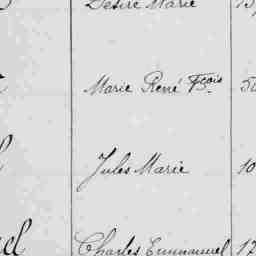 Désiré Marie
Marie René Fçois
Jules Marie 10
Charles Emmanuel 17